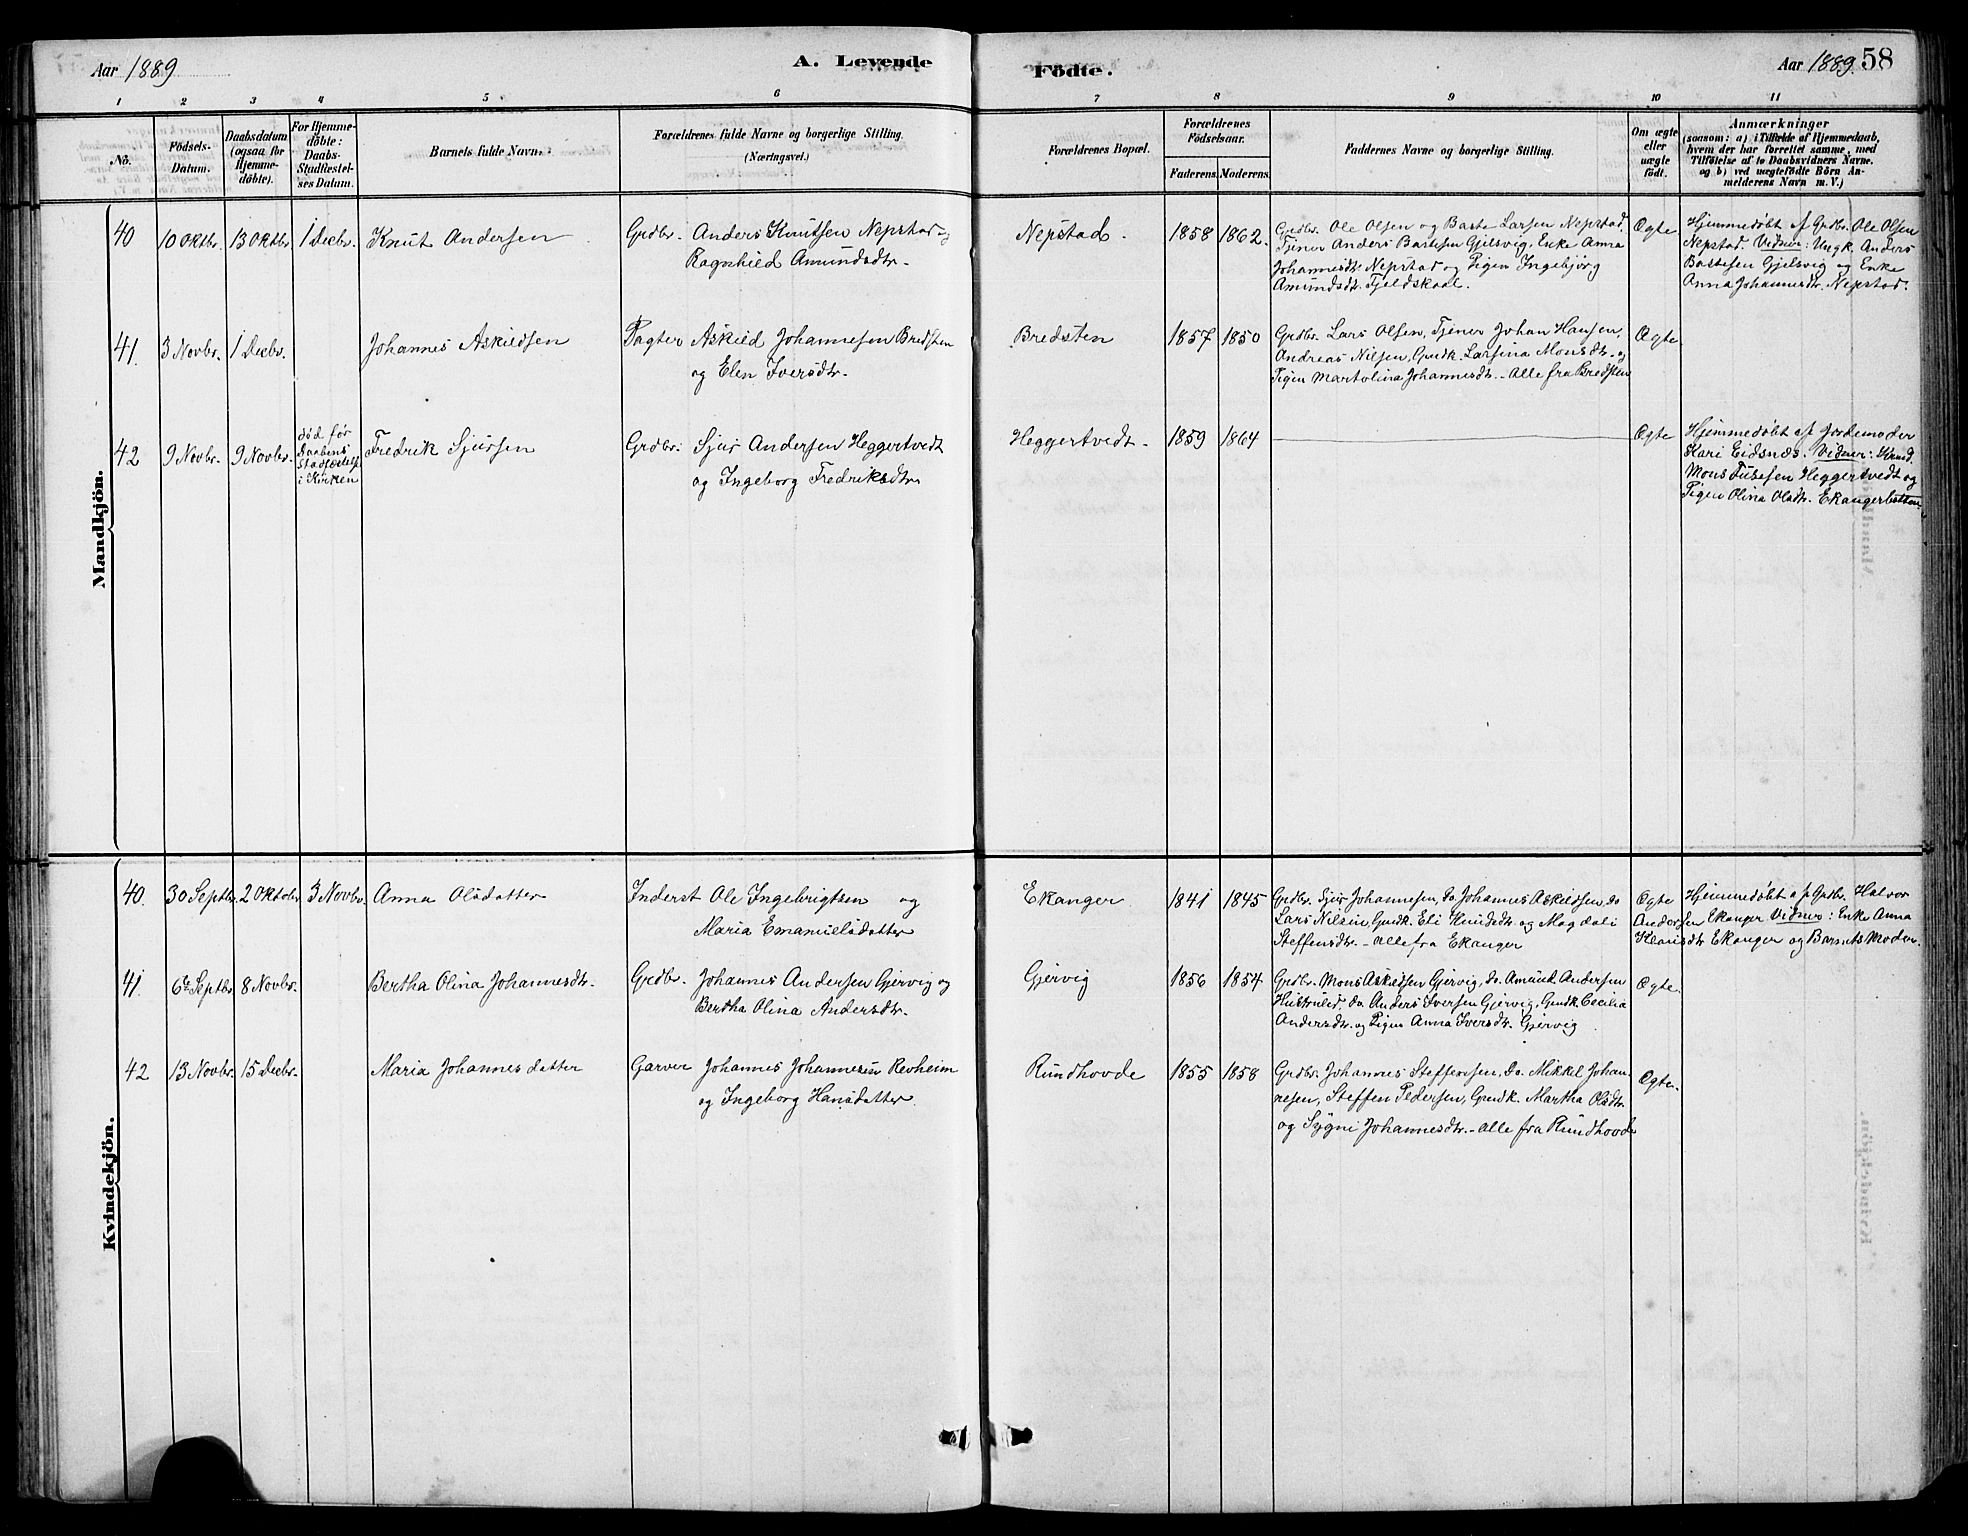 Aar 1889
A. Levende
Födte.
Aar 1889.
58
1 2 3 4 5 6 7 8 9 10 11
No.
Födsels-
Datum.
Daabsdatum
(ogsaa for
Hjemme-
döbte).
For Hjemme-
döbte:
Daabs-
Stadfæstel-
ses Datum.
Barnets fulde Navn.
Forældrenes fulde Navne og borgerlige Stilling.
(Næringsvei.)
Forældrenes Bopæl.
Forældrenes
Födselsaar.
Faderens. Moderens.
Faddernes Navne og borgerlige Stilling.
Om ægte
eller
uægte
födt.
Anmærkninger
(saasom: a) i Tilfælde af Hjemmedaab,
hvem der har forrettet samme, med
Tilföielse af to Daabsvidners Navne.
og b) ved uægtefödte Börn An-
melderens Navn m. V.)
Mandkjön.
40
10 Oktbr.
13 Oktbr.
1 Decbr.
Knut Andersen
Grdbr. Anders Knutsen Nepstad og
Ragnhild Amundsdtr.
Nepstad.
1858
1862.
Grdbr. Ole Olsen og Baste Larsen Nepstad
Tjener Anders Bastesen Gjelsvig, Enke Anna
Johannesdtr. Nepstad og Pigen Ingebjørg
Amundsdtr. Fjeldskaal.
Ægte
Hjemmedøbt af Grdbr. Ole Olsen
Nepstad. Vidner: Ungk. Anders
Bastesen Gjelsvig og Enke
Anna Johannesdtr. Nepstad.
41.
3 Novbr.
1 Decbr.
Johannes Askildsen
Pagter Askild Johannesen Bredsten
og Elen Iversdtr.
Bredsten
1857
1850
Grdbr. Lars Olsen, Tjener Johan Hansen,
Andreas Nilsen, Gmdk. Larsina Monsdtr. og
Pigen Martolina Johannesdtr. - Alle fra Bredsten
Ægte
42
9 Novbr.
9 Novbr.
død før
Daabens
Stadfæstelse
i Kirken
Fredrik Sjursen
Grdbr. Sjur Andersen Heggertvedt
og Ingeborg Fredriksdtr.
Heggertvedt
1859
1864
Ægte
Hjemmedøbt af Jordemoder
Kari Eidsnæs. Vidner:
Mons Heggertvedt og
Pigen Olina Olsdtr. Ekangerbotten.
Kvindekjön.
40.
30 Septbr.
2 Oktober
3 Novbr.
Anna Olsdatter
Inderst Ole Ingebrigtsen og
Maria Emanuelsdatter
Ekanger
1841
1845
Grdbr. Sjur Johannesen, do Johannes Askildsen, do
Lars Nilsen, Gmdk. Eli Knudsdtr og Magdali
Steffensdtr. - Alle fra Ekanger
Ægte
Hjemmedøbt af Grdbr. Halvor
Andersen Ekanger Vidner: Enke Anna
Ekanger og Barnets Moder.
41.
6te Septbr.
8 Novbr.
Bertha Olina Johannesdtr.
Grdbr. Johannes Andersen Gjervig og
Bertha Olina Andersdtr.
Gjervig
1856
1854
Grdbr. Mons Askildsen Gjervig, do. Amund Andersen
do Anders Iversen Gjervig, Gmdk Cecilia
Andersdtr. og Pigen Anna Iversdtr. Gjervig
Ægte.
42
13 Novbr.
15 Decbr.
Maria Johannesdatter
Garver Johannes Johannesen Revheim
og Ingeborg Hansdatter
Rundhovde
1855
1858
Grdbr. Johannes Steffensen, do. Mikkel Johan-
nesen, Steffen Pedersen, Gmdk. Martha Olsdtr.
og Sygni Johannesdtr. - Alle fra Rundhovde
Ægte.